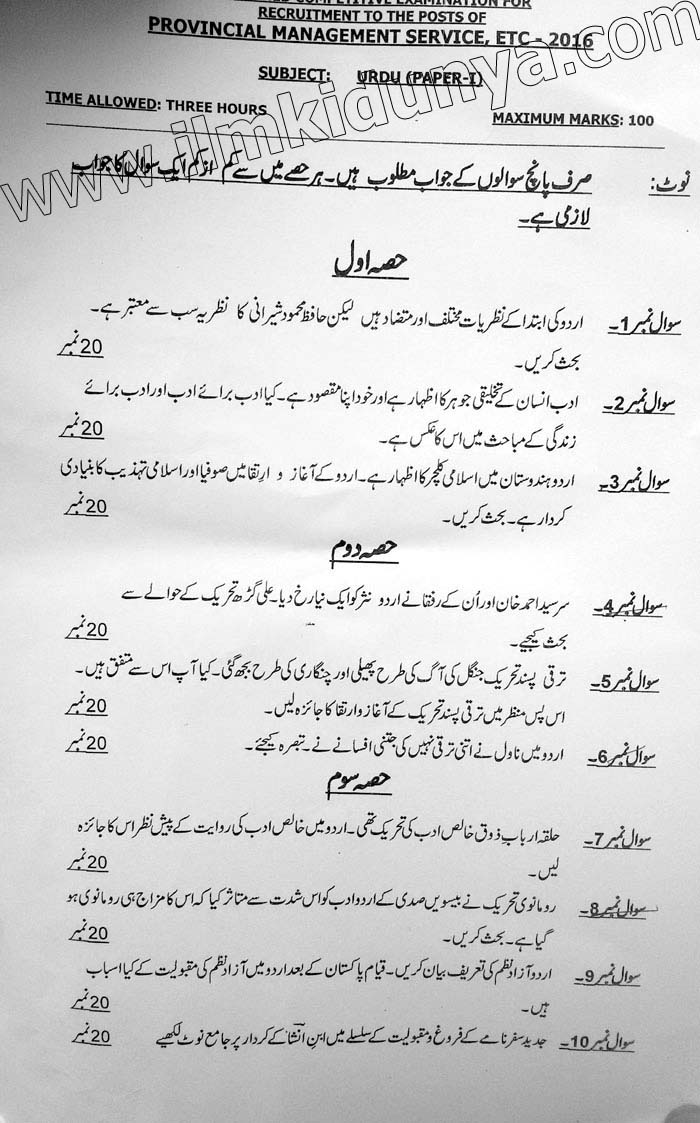 COMPETITIVE EXAMINATION FOR
RECRUITMENT TO THE POSTS OF
PROVINCIAL MANAGEMENT SERVICE, ETC - 2016
SUBJECT: URDU (PAPER-I)
TIME ALLOWED: THREE HOURS
MAXIMUM MARKS: 100
www.ilmkidunya.com
نوٹ: صرف پانچ سوالوں کے جواب مطلوب ہیں۔ ہر حصے میں سے کم از کم ایک سوال کا جواب
لازمی ہے۔
حصہ اول
سوال نمبر 1۔ اردو کی ابتدا کے نظریات مختلف اور متضاد ہیں لیکن حافظ محمود شیرانی کا نظریہ سب سے معتبر ہے۔
بحث کریں۔ 20 نمبر
سوال نمبر 2۔ ادب انسان کے تخلیقی جوہر کا اظہار ہے اور خود اپنا مقصود ہے۔ کیا ادب برائے ادب اور ادب برائے
زندگی کے مباحث میں اس کا عکس ہے۔ 20 نمبر
سوال نمبر 3۔ اردو ہندوستان میں اسلامی کلچر کا اظہار ہے۔ اردو کے آغاز و ارتقا میں صوفیا اور اسلامی تہذیب کا بنیادی
کردار ہے۔ بحث کریں۔ 20 نمبر
حصہ دوم
سوال نمبر 4۔ سرسید احمد خان اور اُن کے رفقا نے اردو نثر کو ایک نیا رخ دیا۔ علی گڑھ تحریک کے حوالے سے
بحث کیجیے۔ 20 نمبر
سوال نمبر 5۔ ترقی پسند تحریک جنگل کی آگ کی طرح پھیلی اور چنگاری کی طرح بجھ گئی۔ کیا آپ اس سے متفق ہیں۔
اس پس منظر میں ترقی پسند تحریک کے آغاز و ارتقا کا جائزہ لیں۔ 20 نمبر
سوال نمبر 6۔ اردو میں ناول نے اتنی ترقی نہیں کی جتنی افسانے نے۔ تبصرہ کیجئے۔ 20 نمبر
حصہ سوم
سوال نمبر 7۔ حلقہ اربابِ ذوق خالص ادب کی تحریک تھی۔ اردو میں خالص ادب کی روایت کے پیش نظر اس کا جائزہ
لیں۔ 20 نمبر
سوال نمبر 8۔ رومانوی تحریک نے بیسویں صدی کے اردو ادب کو اس شدت سے متاثر کیا کہ اس کا مزاج ہی رومانوی ہو
گیا ہے۔ بحث کریں۔ 20 نمبر
سوال نمبر 9۔ اردو آزاد نظم کی تعریف بیان کریں۔ قیام پاکستان کے بعد اردو میں آزاد نظم کی مقبولیت کے کیا اسباب
ہیں۔ 20 نمبر
سوال نمبر 10۔ جدید سفرنامے کے فروغ و مقبولیت کے سلسلے میں ابنِ انشا کے کردار پر جامع نوٹ لکھیے 20 نمبر